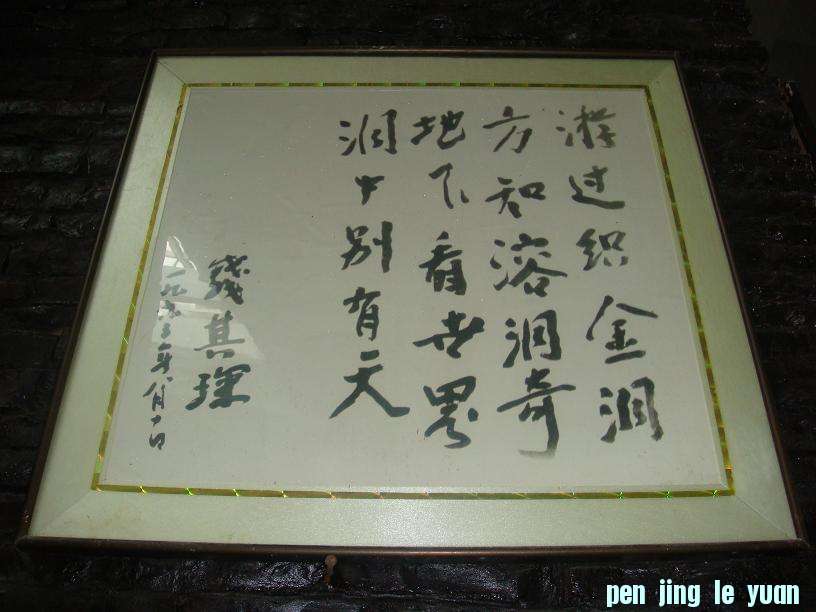 游过织金洞
方知溶洞奇
地下看世界
洞中别有天
錢其琛
一九九五年八月十日
pen jing le yuan